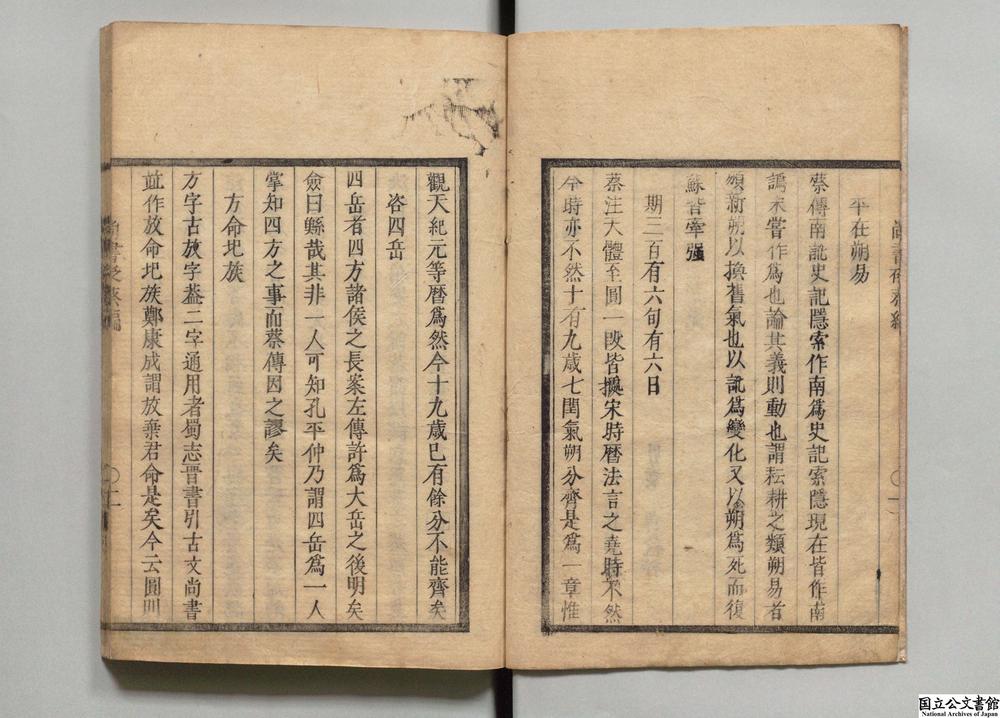 平在朔易
蔡傳南訛史記隱索作南爲史記索隱現在皆作南
譌未嘗作爲也論其義則動也謂耘耕之類朔易者
頒新朔以換舊氣也以訛爲變化又以朔爲死而復
蘇皆牽强
期三百有六旬有六日
蔡注天體至圓一段皆據宋時曆法言之堯時不然
今時亦不然十有九歲七閏氣朔分齊是爲一章惟
觀天紀元等曆爲然今十九歲已有餘分不能齊矣
咨四岳
四岳者四方諸侯之長案左傳許爲大岳之後明矣
僉曰鯀哉其非一人可知孔平仲乃謂四岳爲一人
掌知四方之事而蔡傳因之謬矣
方命圮族
方字古放字葢二字通用者蜀志晉書引古文尚書
竝作放命圮族鄭康成謂放棄君命是矣今云圓則
二
国立公文書館
National Archives of Japan